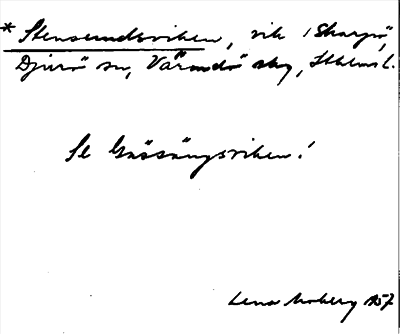 * Stensundsviken, vik i Skarpö,
Djurö sn, Värmdö skg, Sthlms l.
Se Gåsängsviken!
Lena Moberg 1957